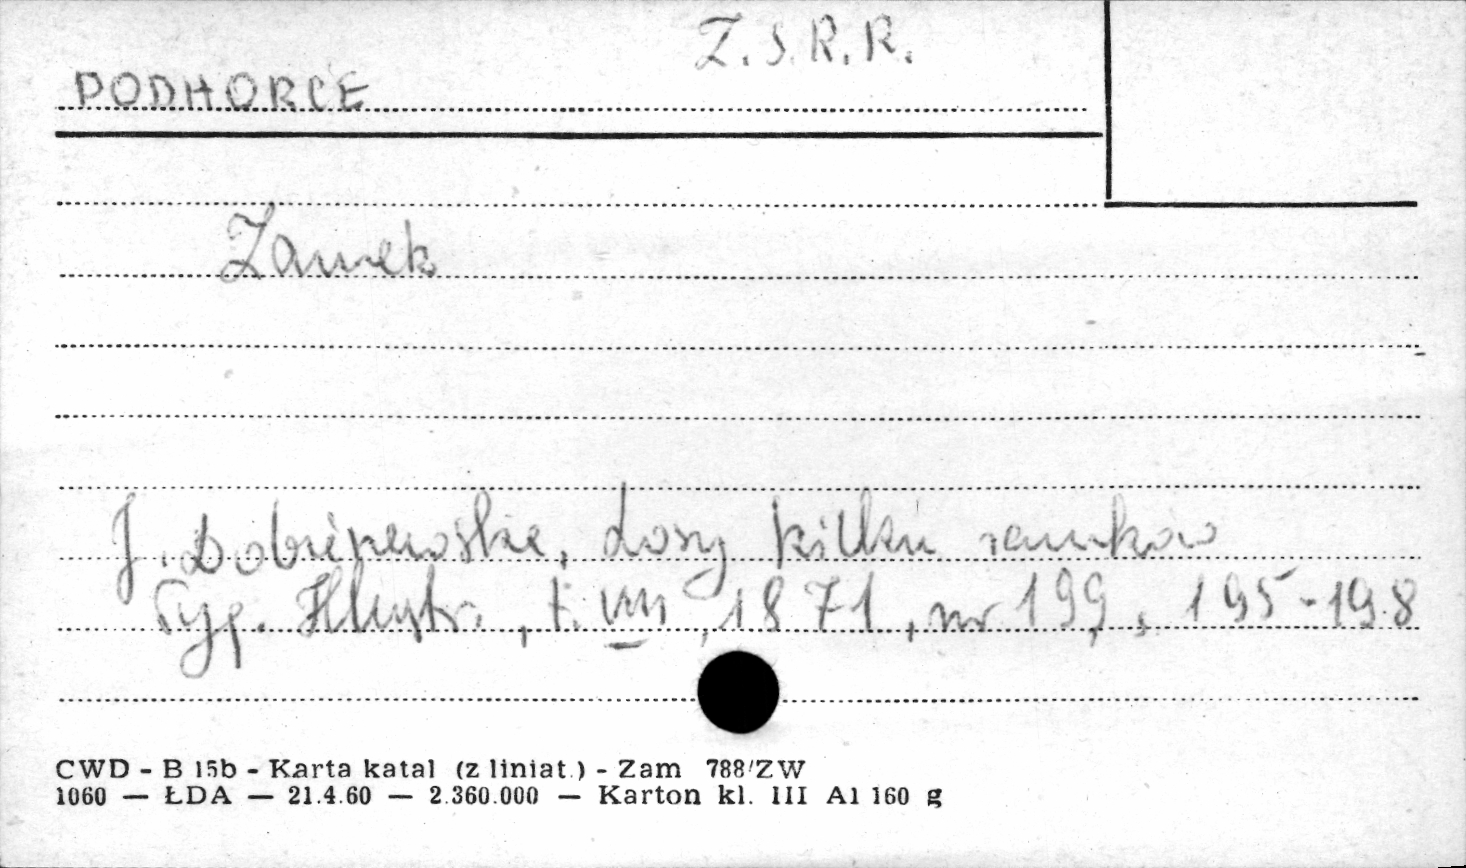 Z.S.R.R.
PODHORCE
Zamek
J. Losy kilku zamków
Tyg. Illustr., t. VIII, 1871, nr 199, 195-198
CWD - B 15b - Karta katal (z liniat.) - Zam 788/ZW
1060 — ŁDA — 21.4.60 — 2.360.000 — Karton kl. III A1 160 g